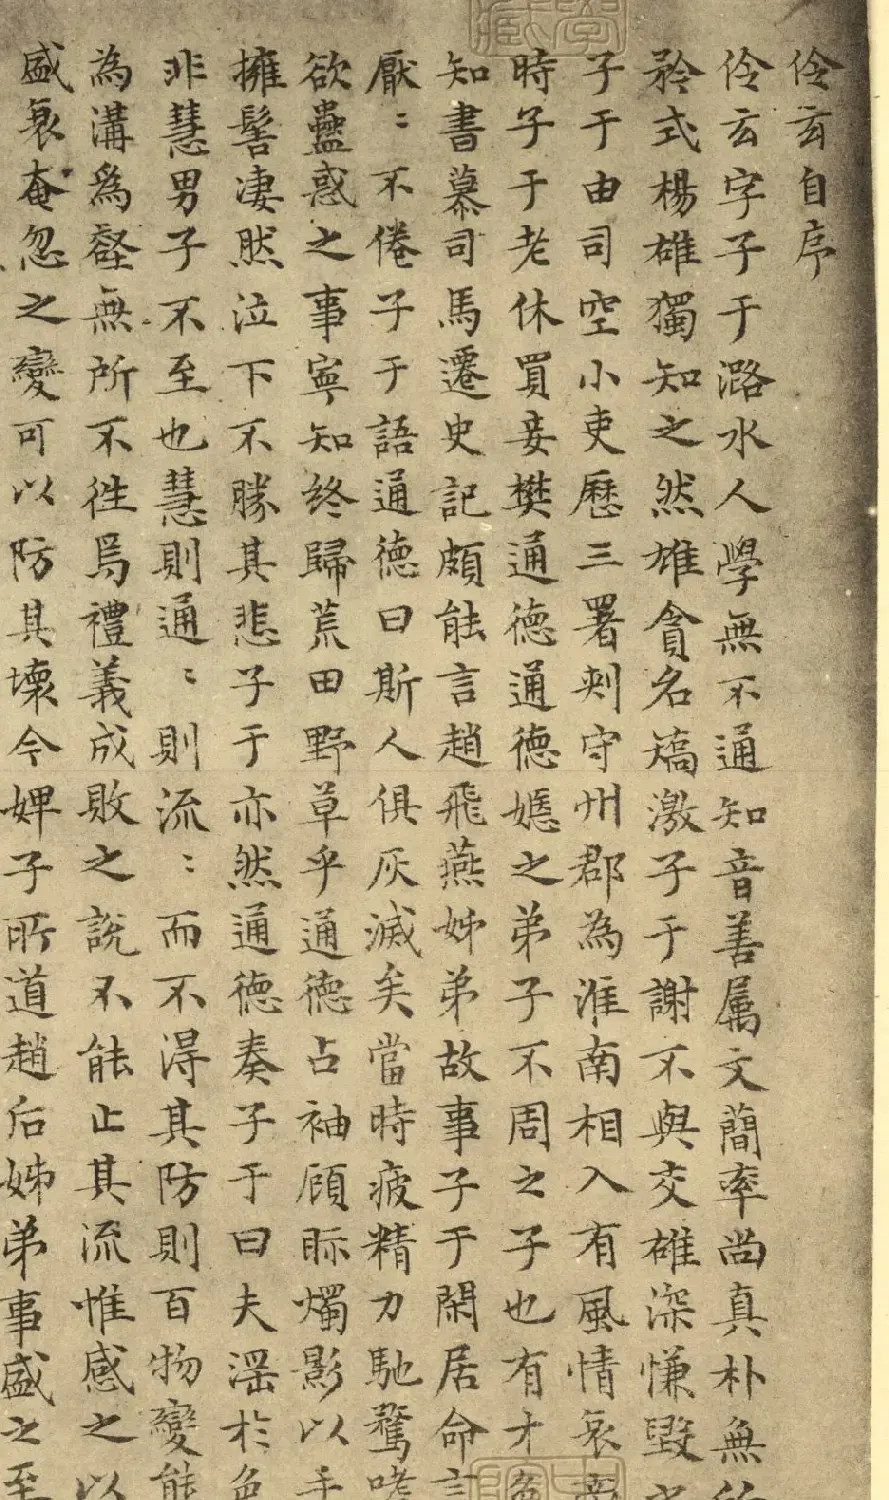 伶玄自序
伶玄字子于潞水人學無不通知音善属文簡率尚真朴無所
矜式楊雄獨知之然雄貪名矯激子于謝不與交雄深慊毀
子于由司空小吏歷三署刾守州郡為淮南相入有風情哀帝
時子于老休買妾樊通德通德嫕之弟子不周之子也有才色
知書慕司馬遷史記頗能言趙飛燕姊弟故事子于閑居命言
厭〻不倦子于語通德曰斯人俱灰滅矣當時疲精力馳騖嗜
欲蠱惑之事寧知終歸荒田野草乎通德占袖顧眎燭影以手
擁髻凄然泣下不勝其悲子于亦然通德奏子于曰夫淫於色
非慧男子不至也慧則通〻則流〻而不得其防則百物變態
為溝為壑無所不徃焉禮義成敗之說不能止其流惟感之以
盛衰奄忽之變可以防其壞今婢子所道趙后姊弟事盛之至